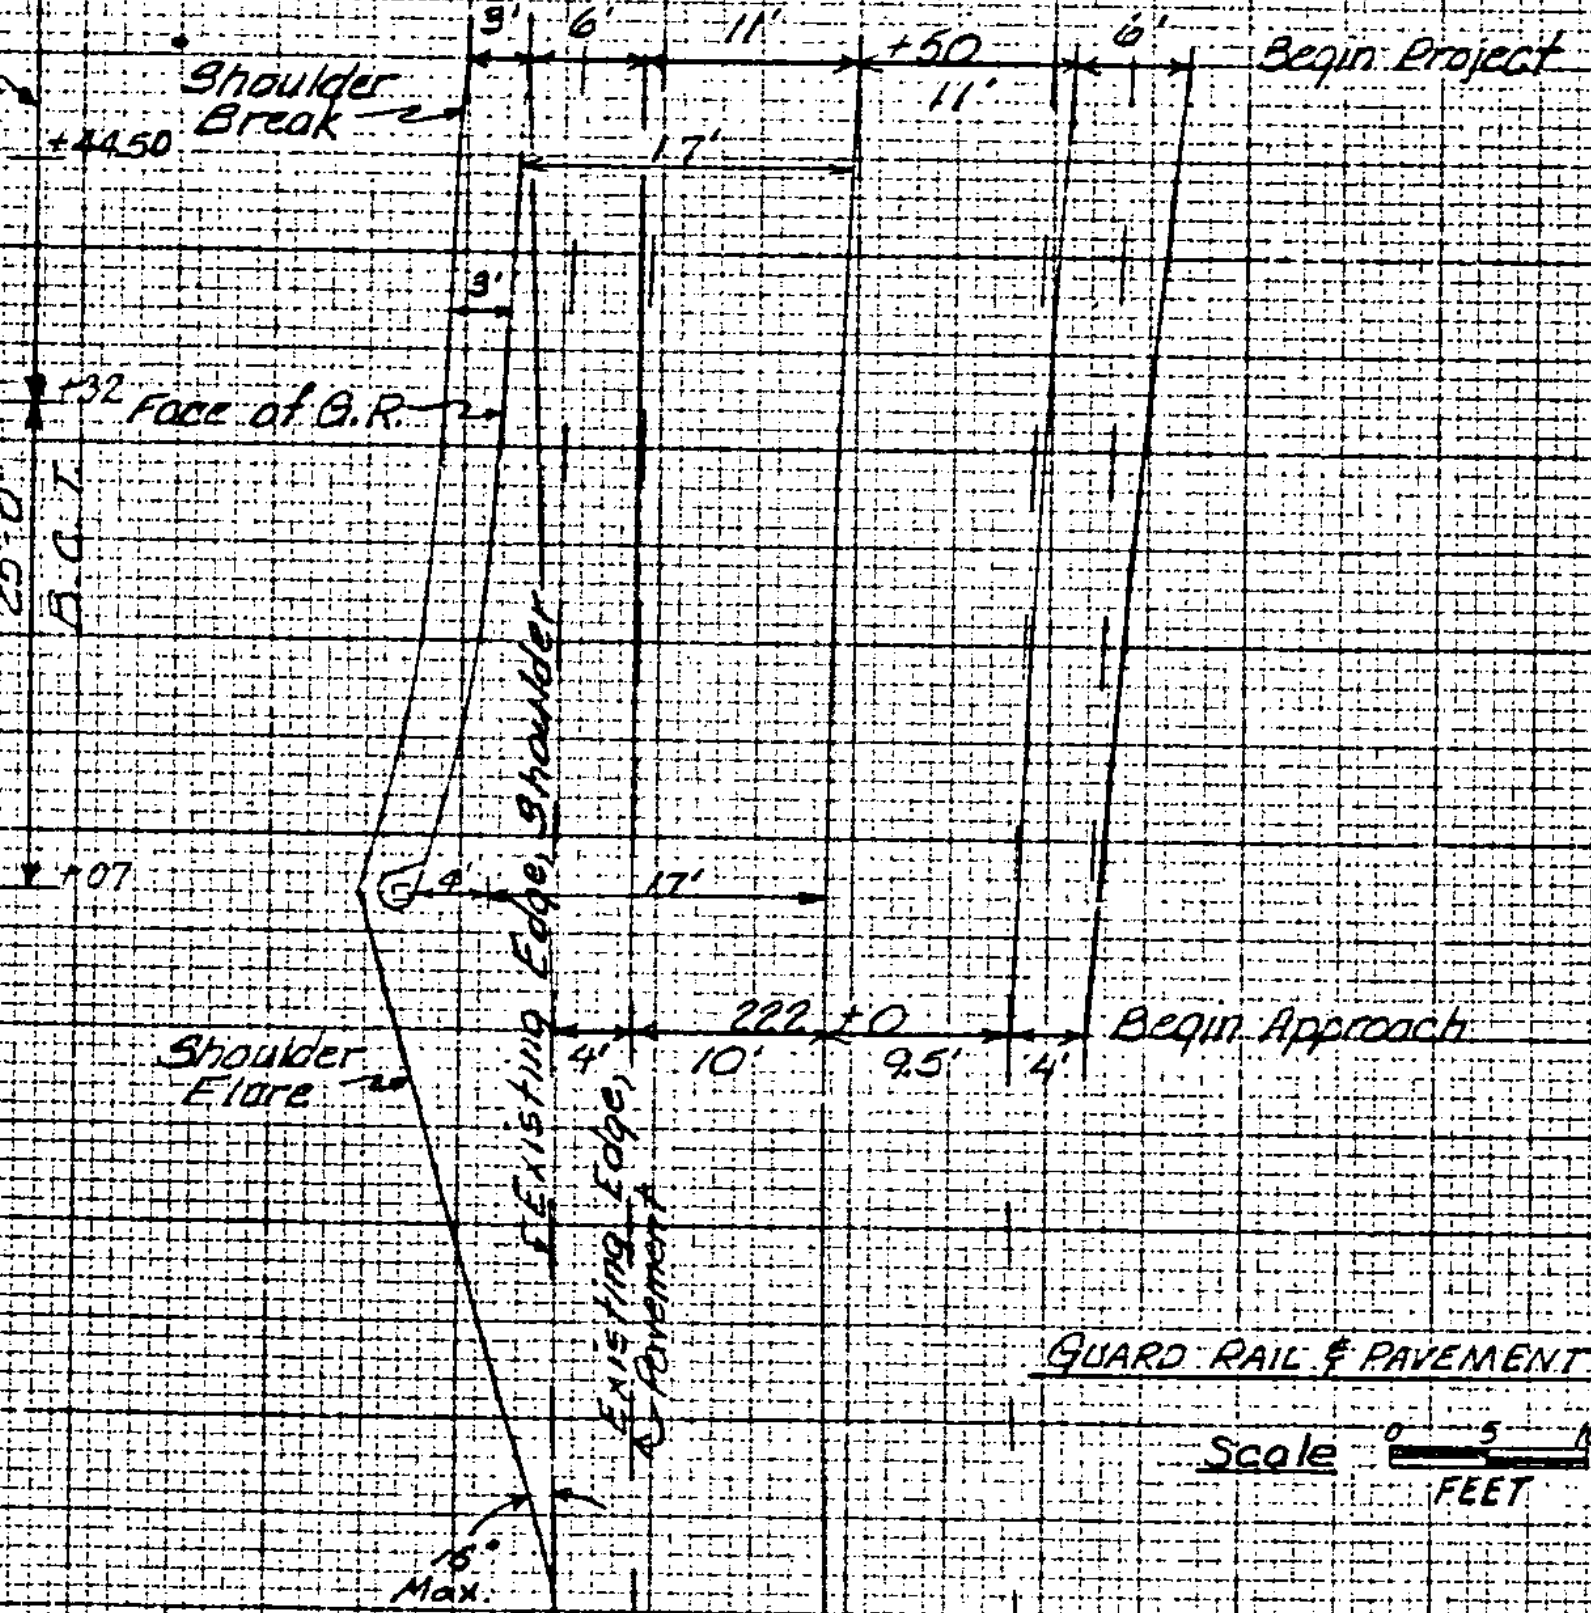 3' 6' 11' +50 6' Begin Project
11'
Shoulder
Break
+44.50
17'
3'
+32
Face of G.R.
25'-0"
B.C.T.
+07
4' 17'
Existing Edge, Shoulder
222 +0
Begin Approach
4' 10' 9.5' 4'
Shoulder
Flare
Existing Edge,
Pavement
GUARD RAIL & PAVEMENT
Scale 0 5
FEET
15°
Max.